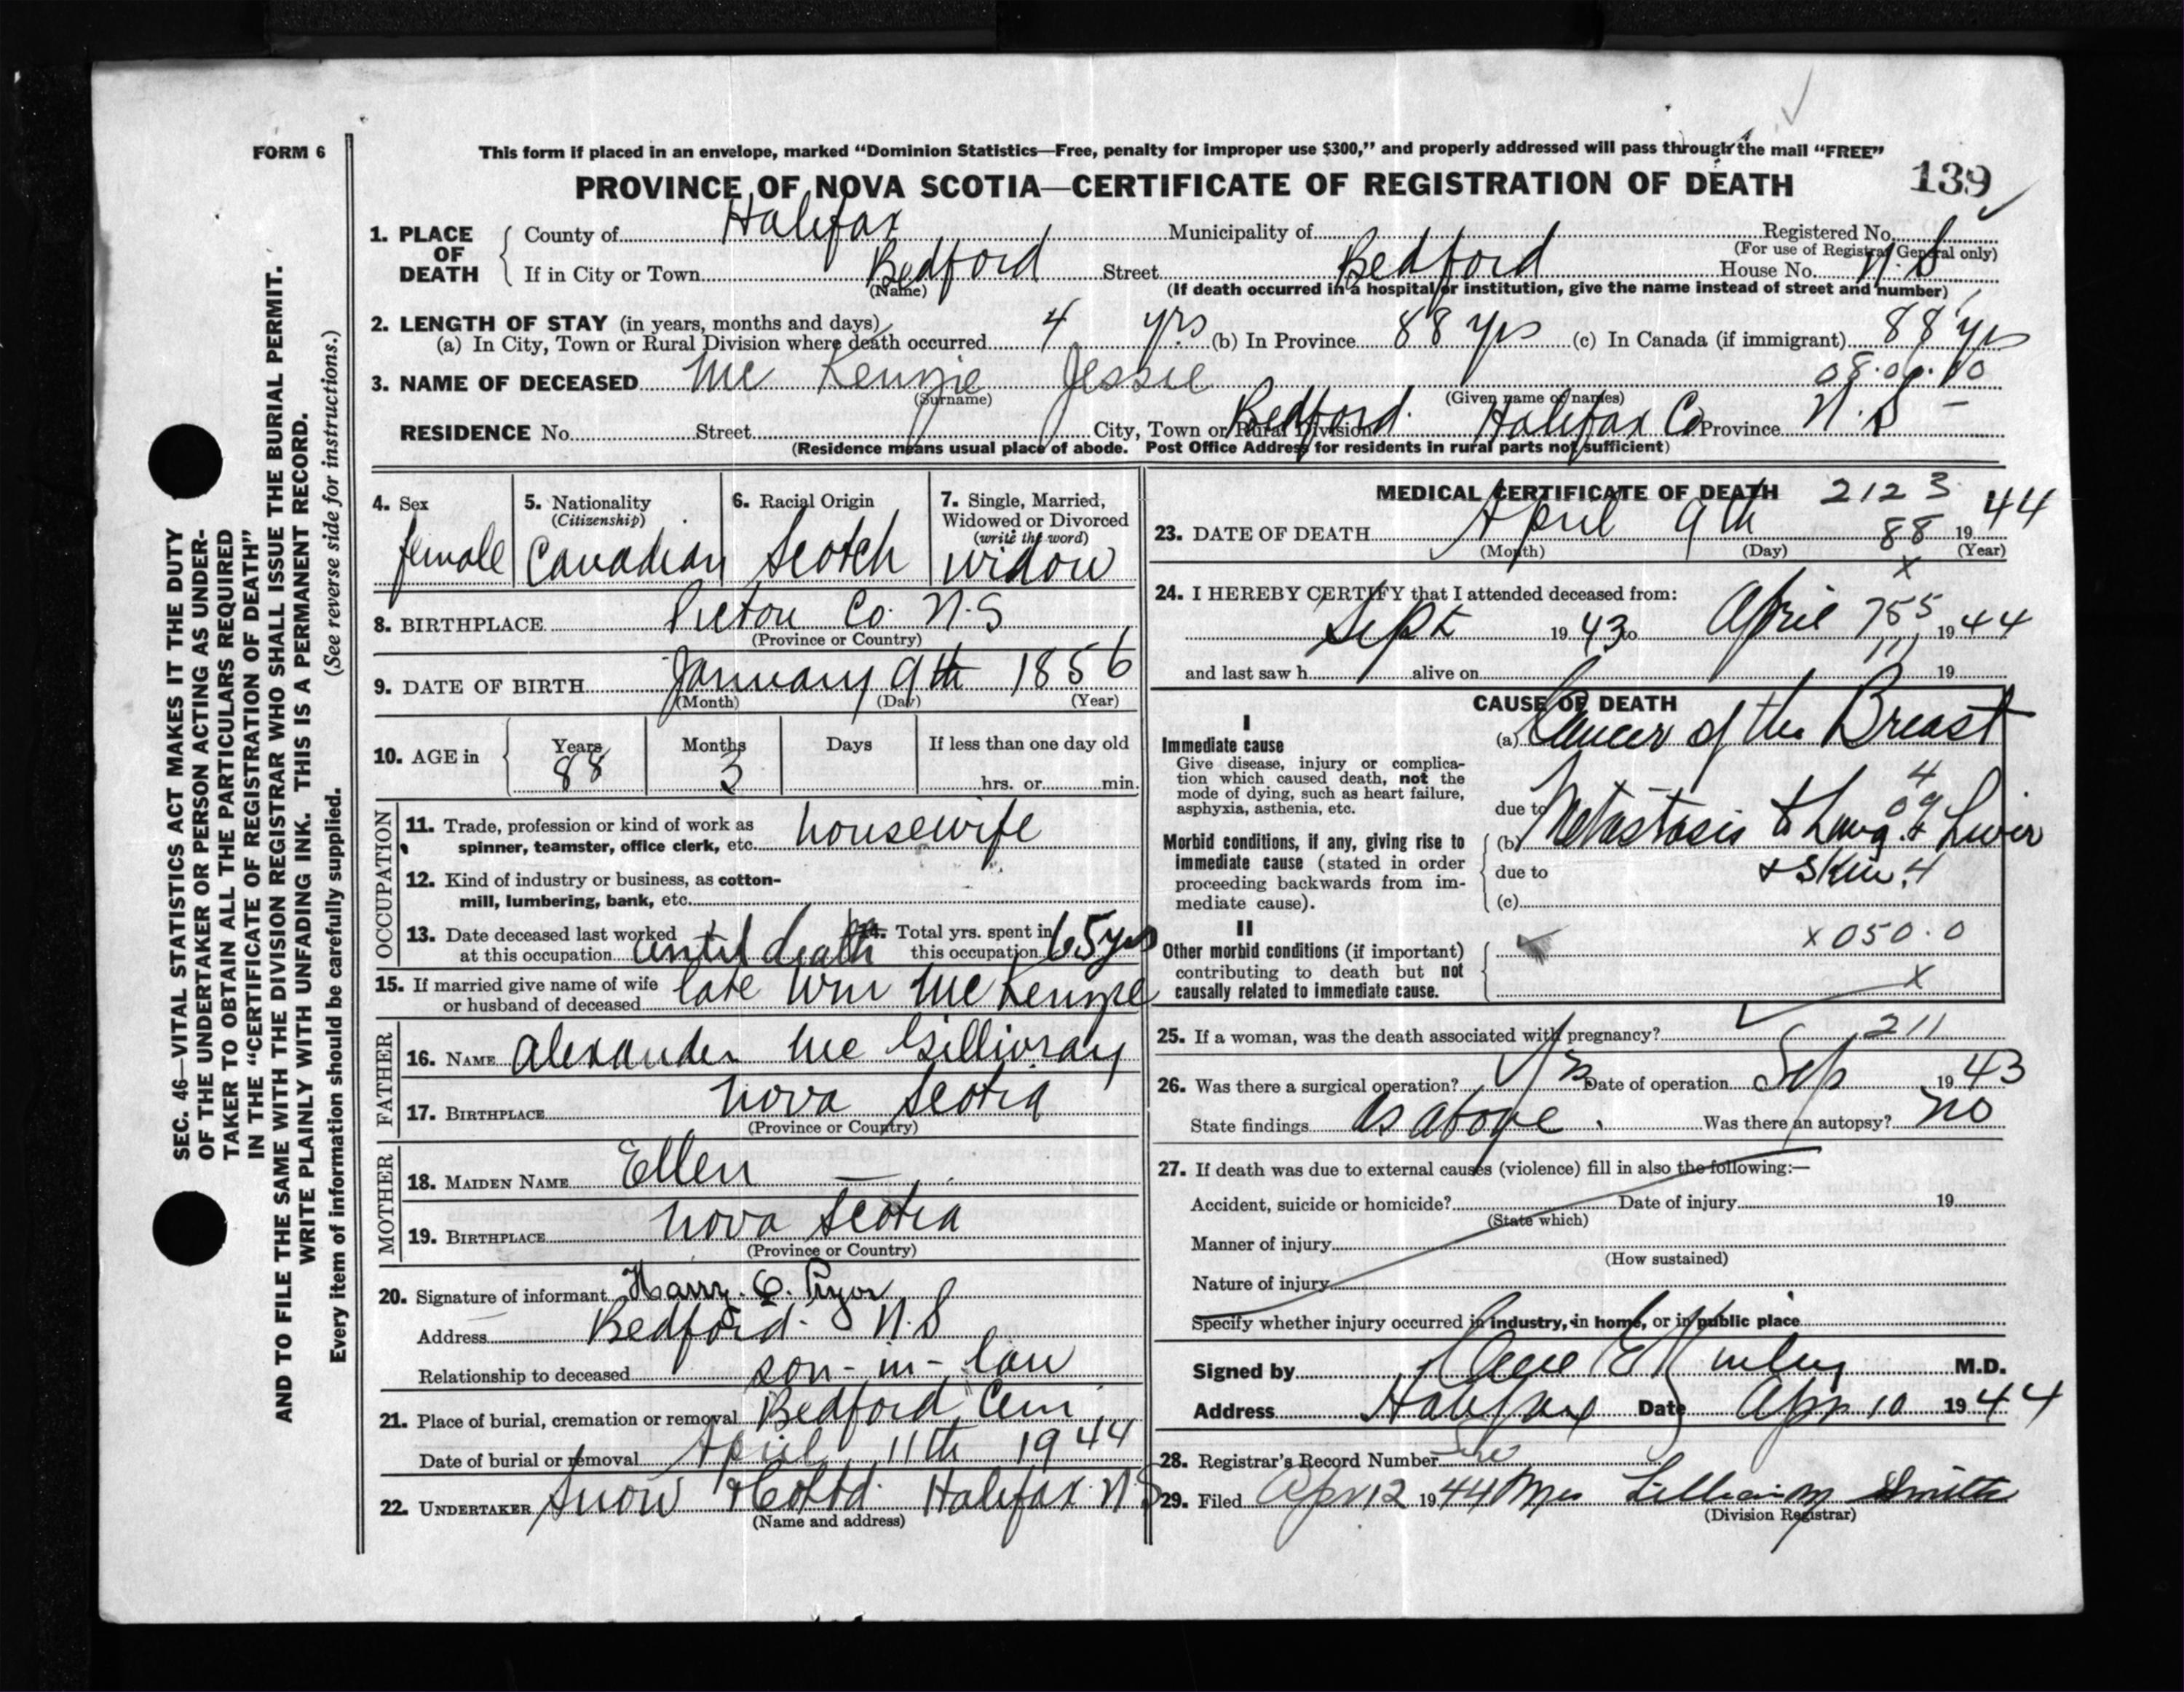 FORM 6
This form if placed in an envelope, marked “Dominion Statistics—Free, penalty for improper use $300,” and properly addressed will pass through the mail “FREE”
PROVINCE OF NOVA SCOTIA—CERTIFICATE OF REGISTRATION OF DEATH
139
SEC. 46—VITAL STATISTICS ACT MAKES IT THE DUTY
OF THE UNDERTAKER OR PERSON ACTING AS UNDER-
TAKER TO OBTAIN ALL THE PARTICULARS REQUIRED
IN THE “CERTIFICATE OF REGISTRATION OF DEATH”
AND TO FILE THE SAME WITH THE DIVISION REGISTRAR WHO SHALL ISSUE THE BURIAL PERMIT.
WRITE PLAINLY WITH UNFADING INK. THIS IS A PERMANENT RECORD.
Every item of information should be carefully supplied. (See reverse side for instructions.)
1. PLACE OF DEATH
County of Halifax Municipality of Registered No.
(For use of Registrar General only)
If in City or Town Bedford Street Bedford House No. N.S
(Name)
(If death occurred in a hospital or institution, give the name instead of street and number)
2. LENGTH OF STAY (in years, months and days)
(a) In City, Town or Rural Division where death occurred 4 yrs (b) In Province 88 yrs (c) In Canada (if immigrant) 88 yrs
3. NAME OF DECEASED Mc Kenzie Jessie
(Surname) (Given name or names)
RESIDENCE No. Street City, Town or Rural Division Bedford. Halifax Co Province N.S
(Residence means usual place of abode. Post Office Address for residents in rural parts not sufficient)
4. Sex female
5. Nationality (Citizenship) Canadian
6. Racial Origin Scotch
7. Single, Married, Widowed or Divorced (write the word) widow
8. BIRTHPLACE Pictou Co. N.S
(Province or Country)
9. DATE OF BIRTH January 9th 1856
(Month) (Day) (Year)
10. AGE in Years 88 Months 3 Days If less than one day old hrs. or min.
OCCUPATION
11. Trade, profession or kind of work as
spinner, teamster, office clerk, etc. housewife
12. Kind of industry or business, as cotton-
mill, lumbering, bank, etc.
13. Date deceased last worked at this occupation until death
14. Total yrs. spent in this occupation 65 yrs
15. If married give name of wife
or husband of deceased late Wm McKenzie
FATHER
16. NAME Alexander McGillivray
17. BIRTHPLACE Nova Scotia
(Province or Country)
MOTHER
18. MAIDEN NAME Ellen —
19. BIRTHPLACE Nova Scotia
(Province or Country)
20. Signature of informant Harry. C. Pryor
Address Bedford. N.S
Relationship to deceased son-in-law
21. Place of burial, cremation or removal Bedford Cem
Date of burial or removal April 11th 1944
22. UNDERTAKER Snow & Co Ltd. Halifax N.S
(Name and address)
MEDICAL CERTIFICATE OF DEATH 2123
23. DATE OF DEATH April 9th 1944
(Month) (Day) (Year)
88
x
24. I HEREBY CERTIFY that I attended deceased from:
Sept 1943 to April 1944
755
and last saw h alive on 19
CAUSE OF DEATH
I
Immediate cause
Give disease, injury or complica-
tion which caused death, not the
mode of dying, such as heart failure,
asphyxia, asthenia, etc.
(a) Cancer of the Breast
due to
Morbid conditions, if any, giving rise to
immediate cause (stated in order
proceeding backwards from im-
mediate cause).
(b) Metastasis to Lung & Liver
due to & Skin. 4
(c)
II
Other morbid conditions (if important)
contributing to death but not
causally related to immediate cause.
x050.0
x
25. If a woman, was the death associated with pregnancy?
211
26. Was there a surgical operation? Yes Date of operation Sep 1943
State findings as above. Was there an autopsy? No
27. If death was due to external causes (violence) fill in also the following:—
Accident, suicide or homicide? Date of injury 19
(State which)
Manner of injury
(How sustained)
Nature of injury
Specify whether injury occurred in industry, in home, or in public place
Signed by M.D.
Address Halifax Date Apr 10 1944
28. Registrar's Record Number
29. Filed Apr 12 1944 Mrs Lillian M Smith
(Division Registrar)